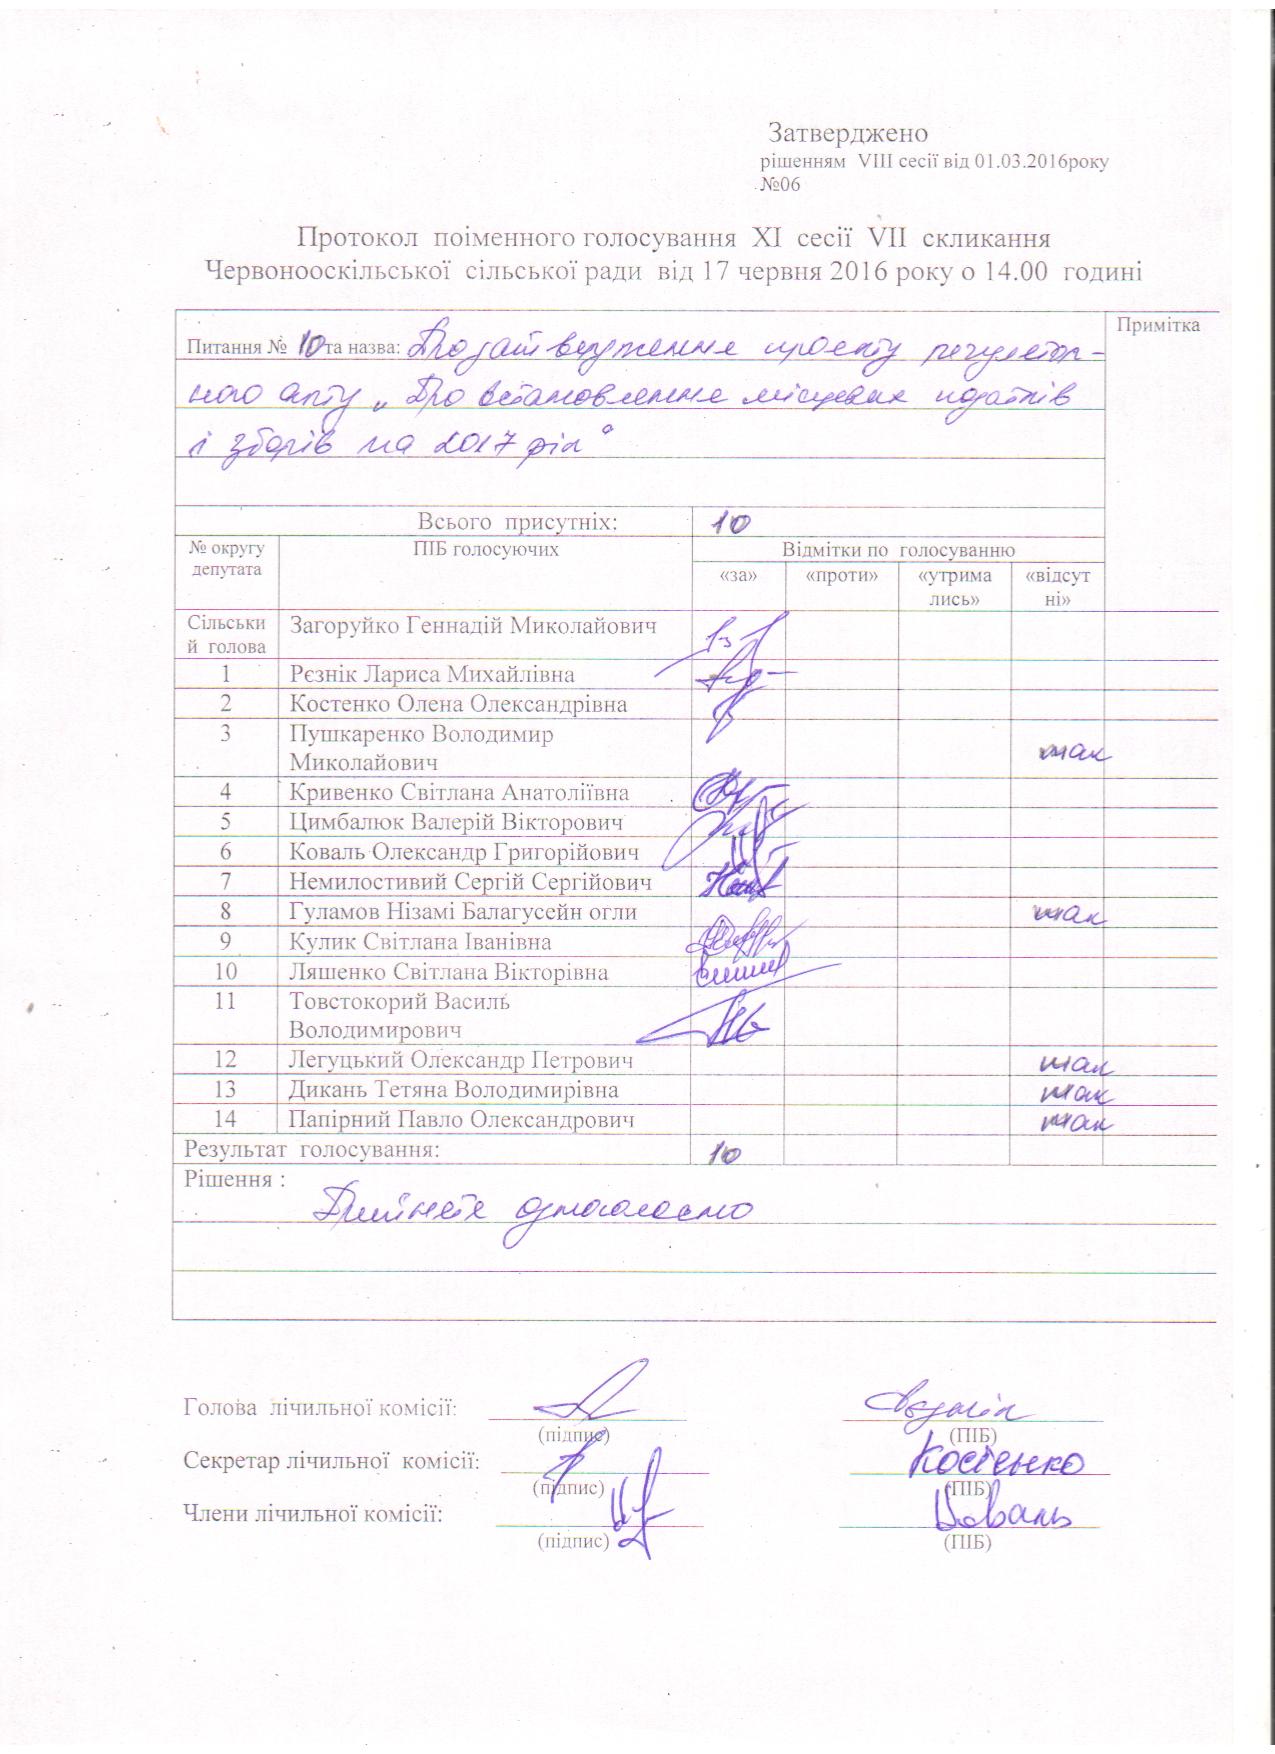 Затверджено
рішенням VIII сесії від 01.03.2016року
№06
Протокол поіменного голосування XI сесії VII скликання
Червонооскільської сільської ради від 17 червня 2016 року о 14.00 годині
Питання № 10 та назва: Про затвердження проекту регулятор-
ного акту „Про встановлення місцевих податків
і зборів на 2017 рік“
Примітка
Всього присутніх: 10
№ округу депутата
ПІБ голосуючих
Відмітки по голосуванню
«за» «проти» «утрима «відсут
лись» ні»
Сільськи Загоруйко Геннадій Миколайович
й голова
1 Рєзнік Лариса Михайлівна
2 Костенко Олена Олександрівна
3 Пушкаренко Володимир
Миколайович так
4 Кривенко Світлана Анатоліївна
5 Цимбалюк Валерій Вікторович
6 Коваль Олександр Григорійович
7 Немилостивий Сергій Сергійович
8 Гуламов Нізамі Балагусейн огли так
9 Кулик Світлана Іванівна
10 Ляшенко Світлана Вікторівна
11 Товстокорий Василь
Володимирович
12 Легуцький Олександр Петрович так
13 Дикань Тетяна Володимирівна так
14 Папірний Павло Олександрович так
Результат голосування: 10
Рішення :
Прийнято одноголосно
Голова лічильної комісії:
(підпис) (ПІБ)
Секретар лічильної комісії: Костенко
(підпис) (ПІБ)
Члени лічильної комісії: Коваль
(підпис) (ПІБ)